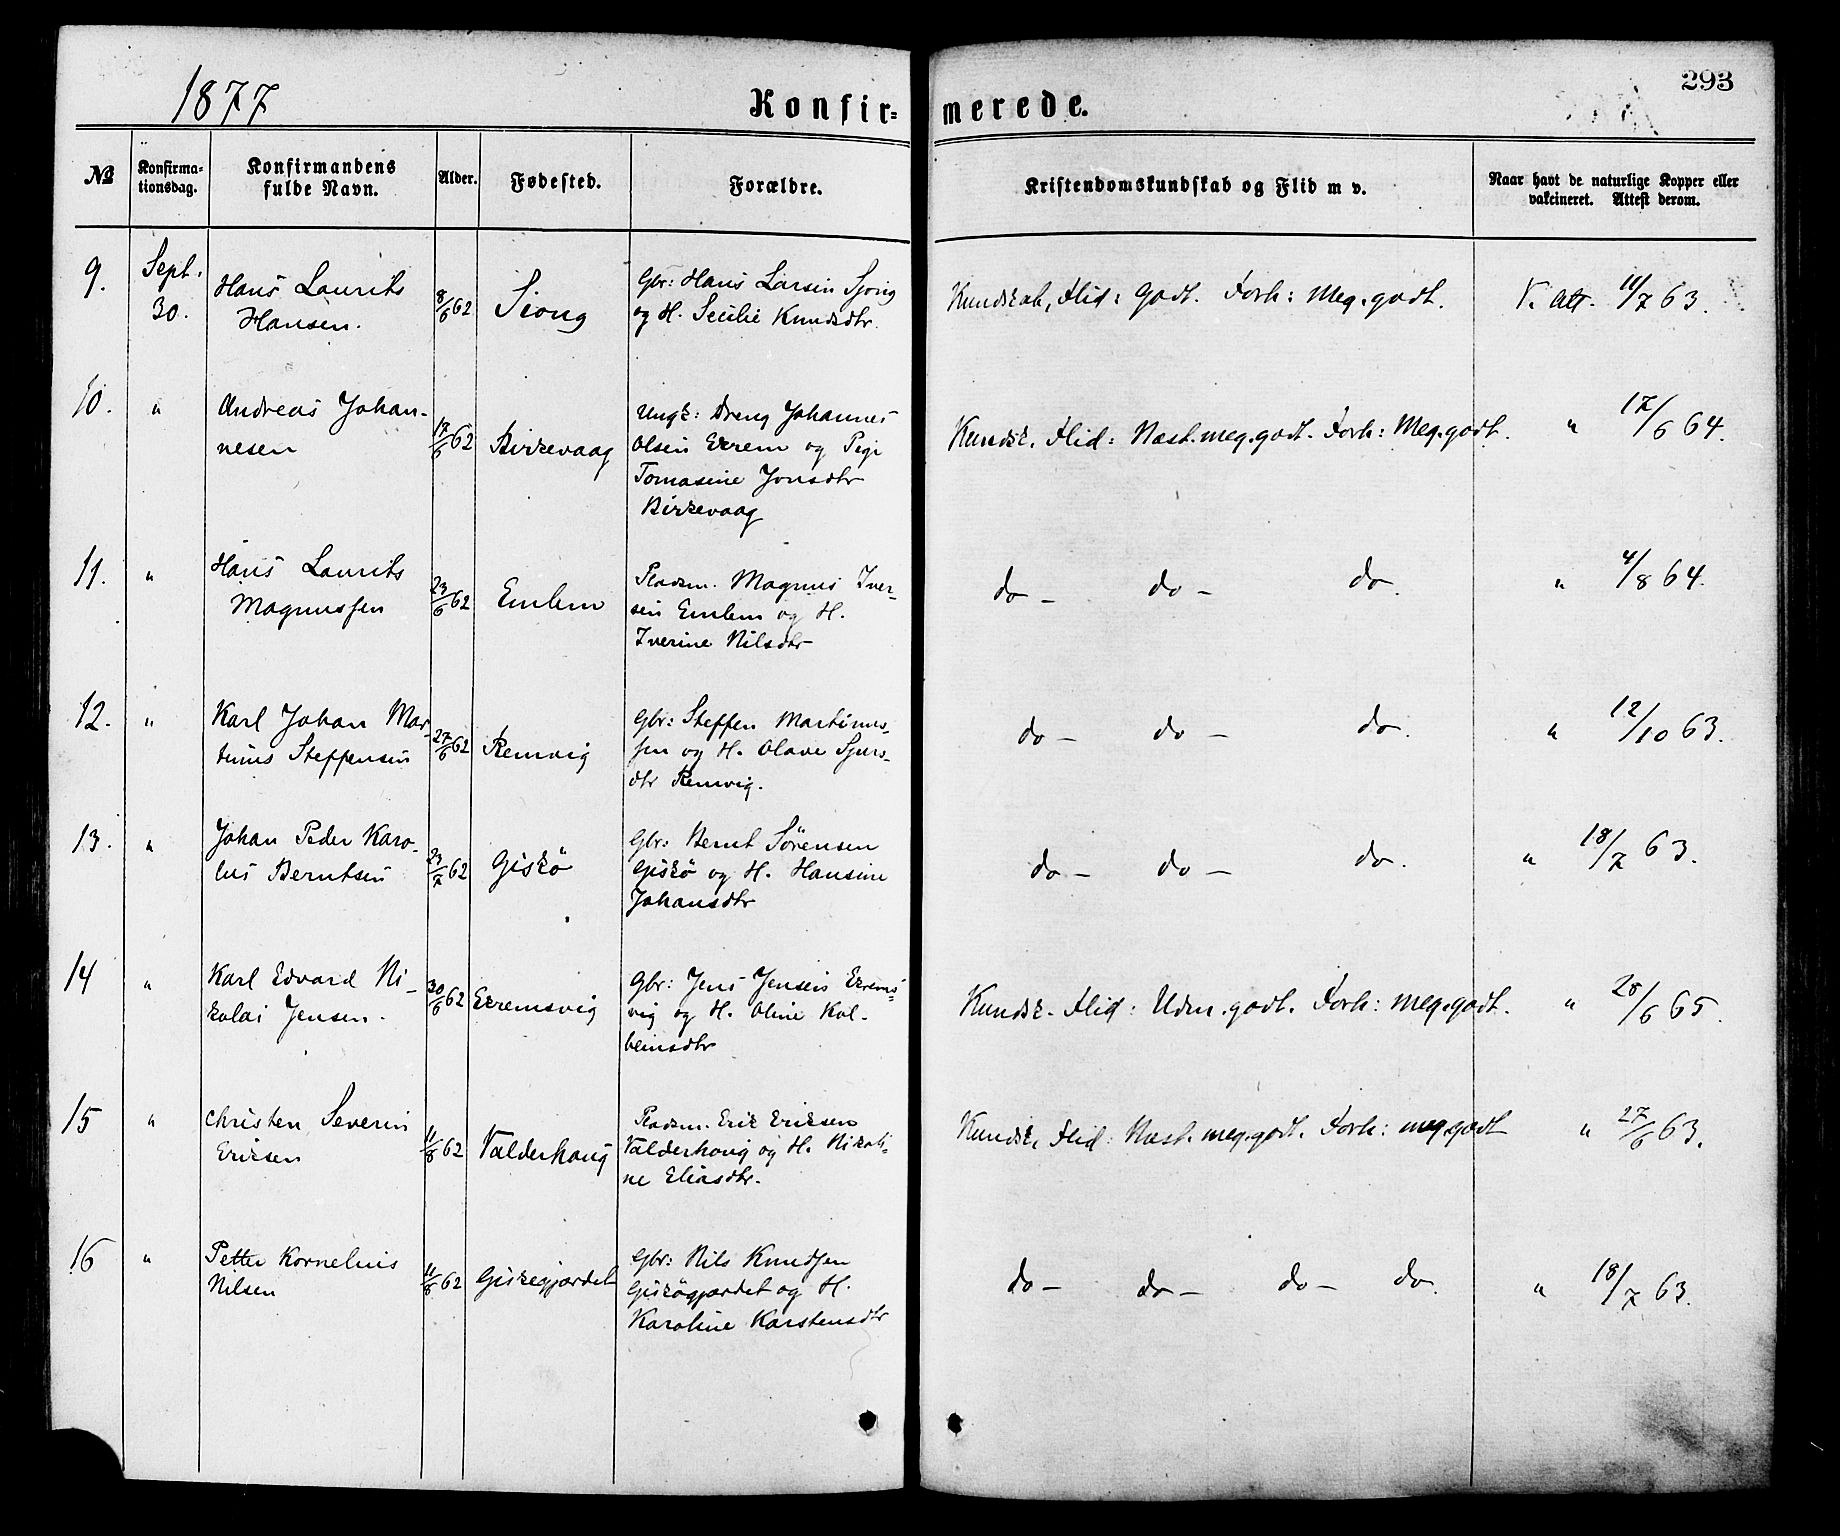 1877
Konfir=
merede.
293
№
Konfirma-
tionsdag.
Konfirmandens
fulde Navn.
Alder.
Fødested.
Forældre.
Kristendomskundskab og Flid m v.
Naar havt de naturlige Kopper eller
vakcineret. Attest derom.
9.
Sept.
30.
Hans Laurits
Hansen.
8/6 62
Siong
Gbr: Hans Larsen Sjong
og H. Secilie Knudsdtr.
Kundskab, Flid: Godt. Forh: Meg. godt.
V. Att. 11/7 63.
10.
"
Andreas Johan-
nesen
17/6 62
Birkevaag
Ungk: Dreng Johannes
Olsen Ekrem og Pige
Tomasine Jonsdtr
Birkevaag
Kundsk. Flid: Næst. meg. godt. Forh: Meg. godt.
" 17/6 64.
11.
"
Hans Laurits
Magnussen
23/6 62
Emlem
Pladsm. Magnus Iver-
sen Emlem og H.
Iverine Nilsdtr
do – do – do.
" 4/8 64.
12.
"
Karl Johan Mar-
tinus Steffensen
27/6 62
Remvig
Gbr: Steffen Martinus-
sen og H. Olave Sjurs-
dtr Remvig.
do – do – do.
" 12/10 63.
13.
"
Johan Peder Karo-
lus Berntsen
23/7 62
Giskø
Gbr: Bernt Sørensen
Giskø og H. Hansine
Johansdtr
do – do – do.
" 18/7 63.
14
"
Karl Edvard Ni-
kolai Jensen.
30/6 62
Ekremsvig
Gbr: Jens Jensen Ekrems-
vig og H. Oline Kol-
beinsdtr
Kundsk. Flid: Udm. godt. Forh: Meg. godt.
" 28/6 65.
15
"
Christen Severin
Eriksen
11/8 62
Valderhaug
Pladsm. Erik Eriksen
Valderhoug og H. Nikoli-
ne Eliasdtr.
Kundsk. Flid: Næst. meg. godt. Forh: meg. godt
" 27/6 63.
16
"
Petter Kornelius
Nilsen
11/8 62
Giskegjærdet
Gbr: Nils Knudsen
Giskøgjærdet og H.
Karoline Karstensdtr
do – do – do – do.
" 18/7 63.